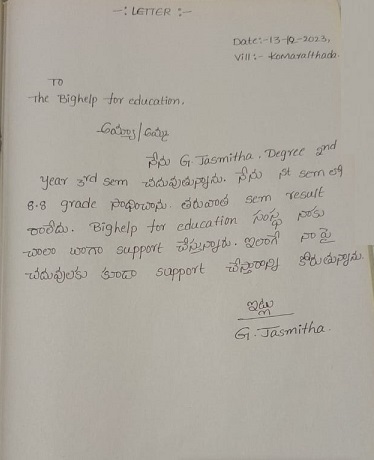 -: LETTER :-
Date:-13-12-2023,
Vill:- Komaralthada.
TO
The Bighelp for education,
అయ్యా/అమ్మా
నేను G. Jasmitha, Degree 2nd
Year 3rd sem చదువుతున్నాను. నేను 1st sem లో
8.8 grade సాధించాను. తరువాత sem result
రాలేదు. Bighelp for education సంస్థ నాకు
చాలా బాగా support చేస్తున్నారు. ఇలాగే నా పై
చదువులకు కూడా support చేస్తారని కోరుతున్నాను.
ఇట్లు
G. Jasmitha.